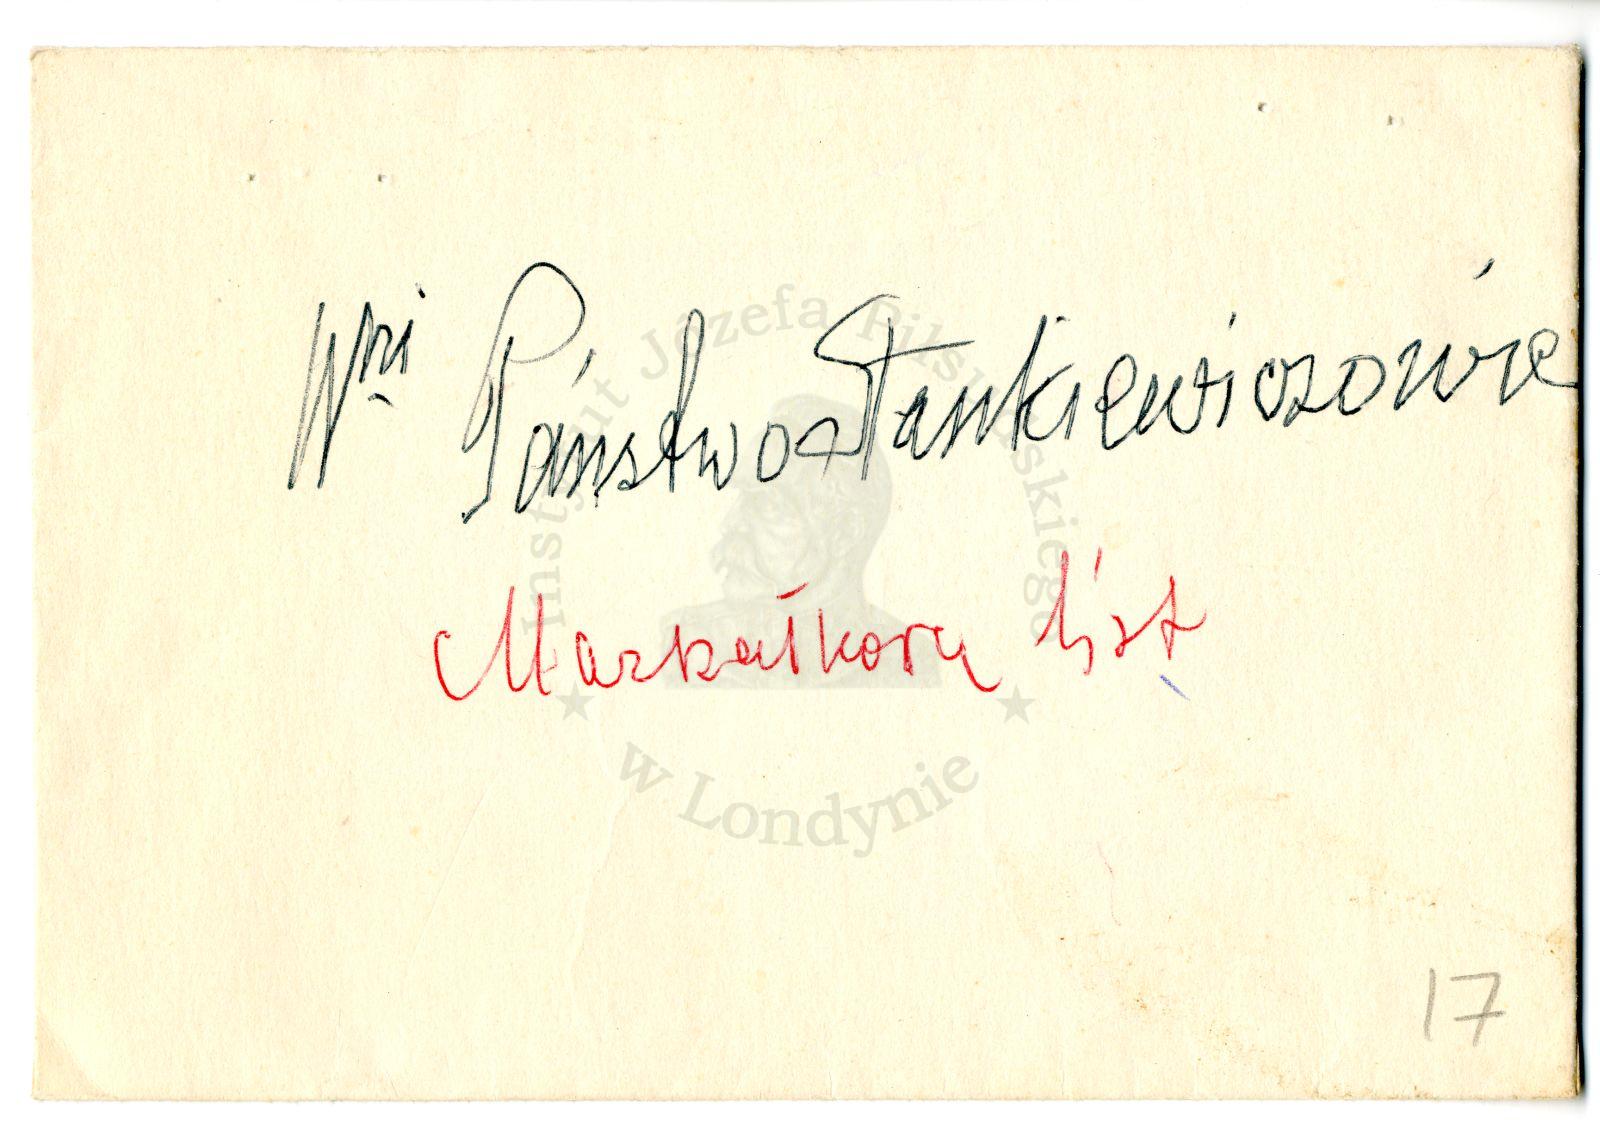 Wni Państwo Stankiewiczowie
Marszałkowa list
17
Instytut Józefa Piłsudskiego
w Londynie